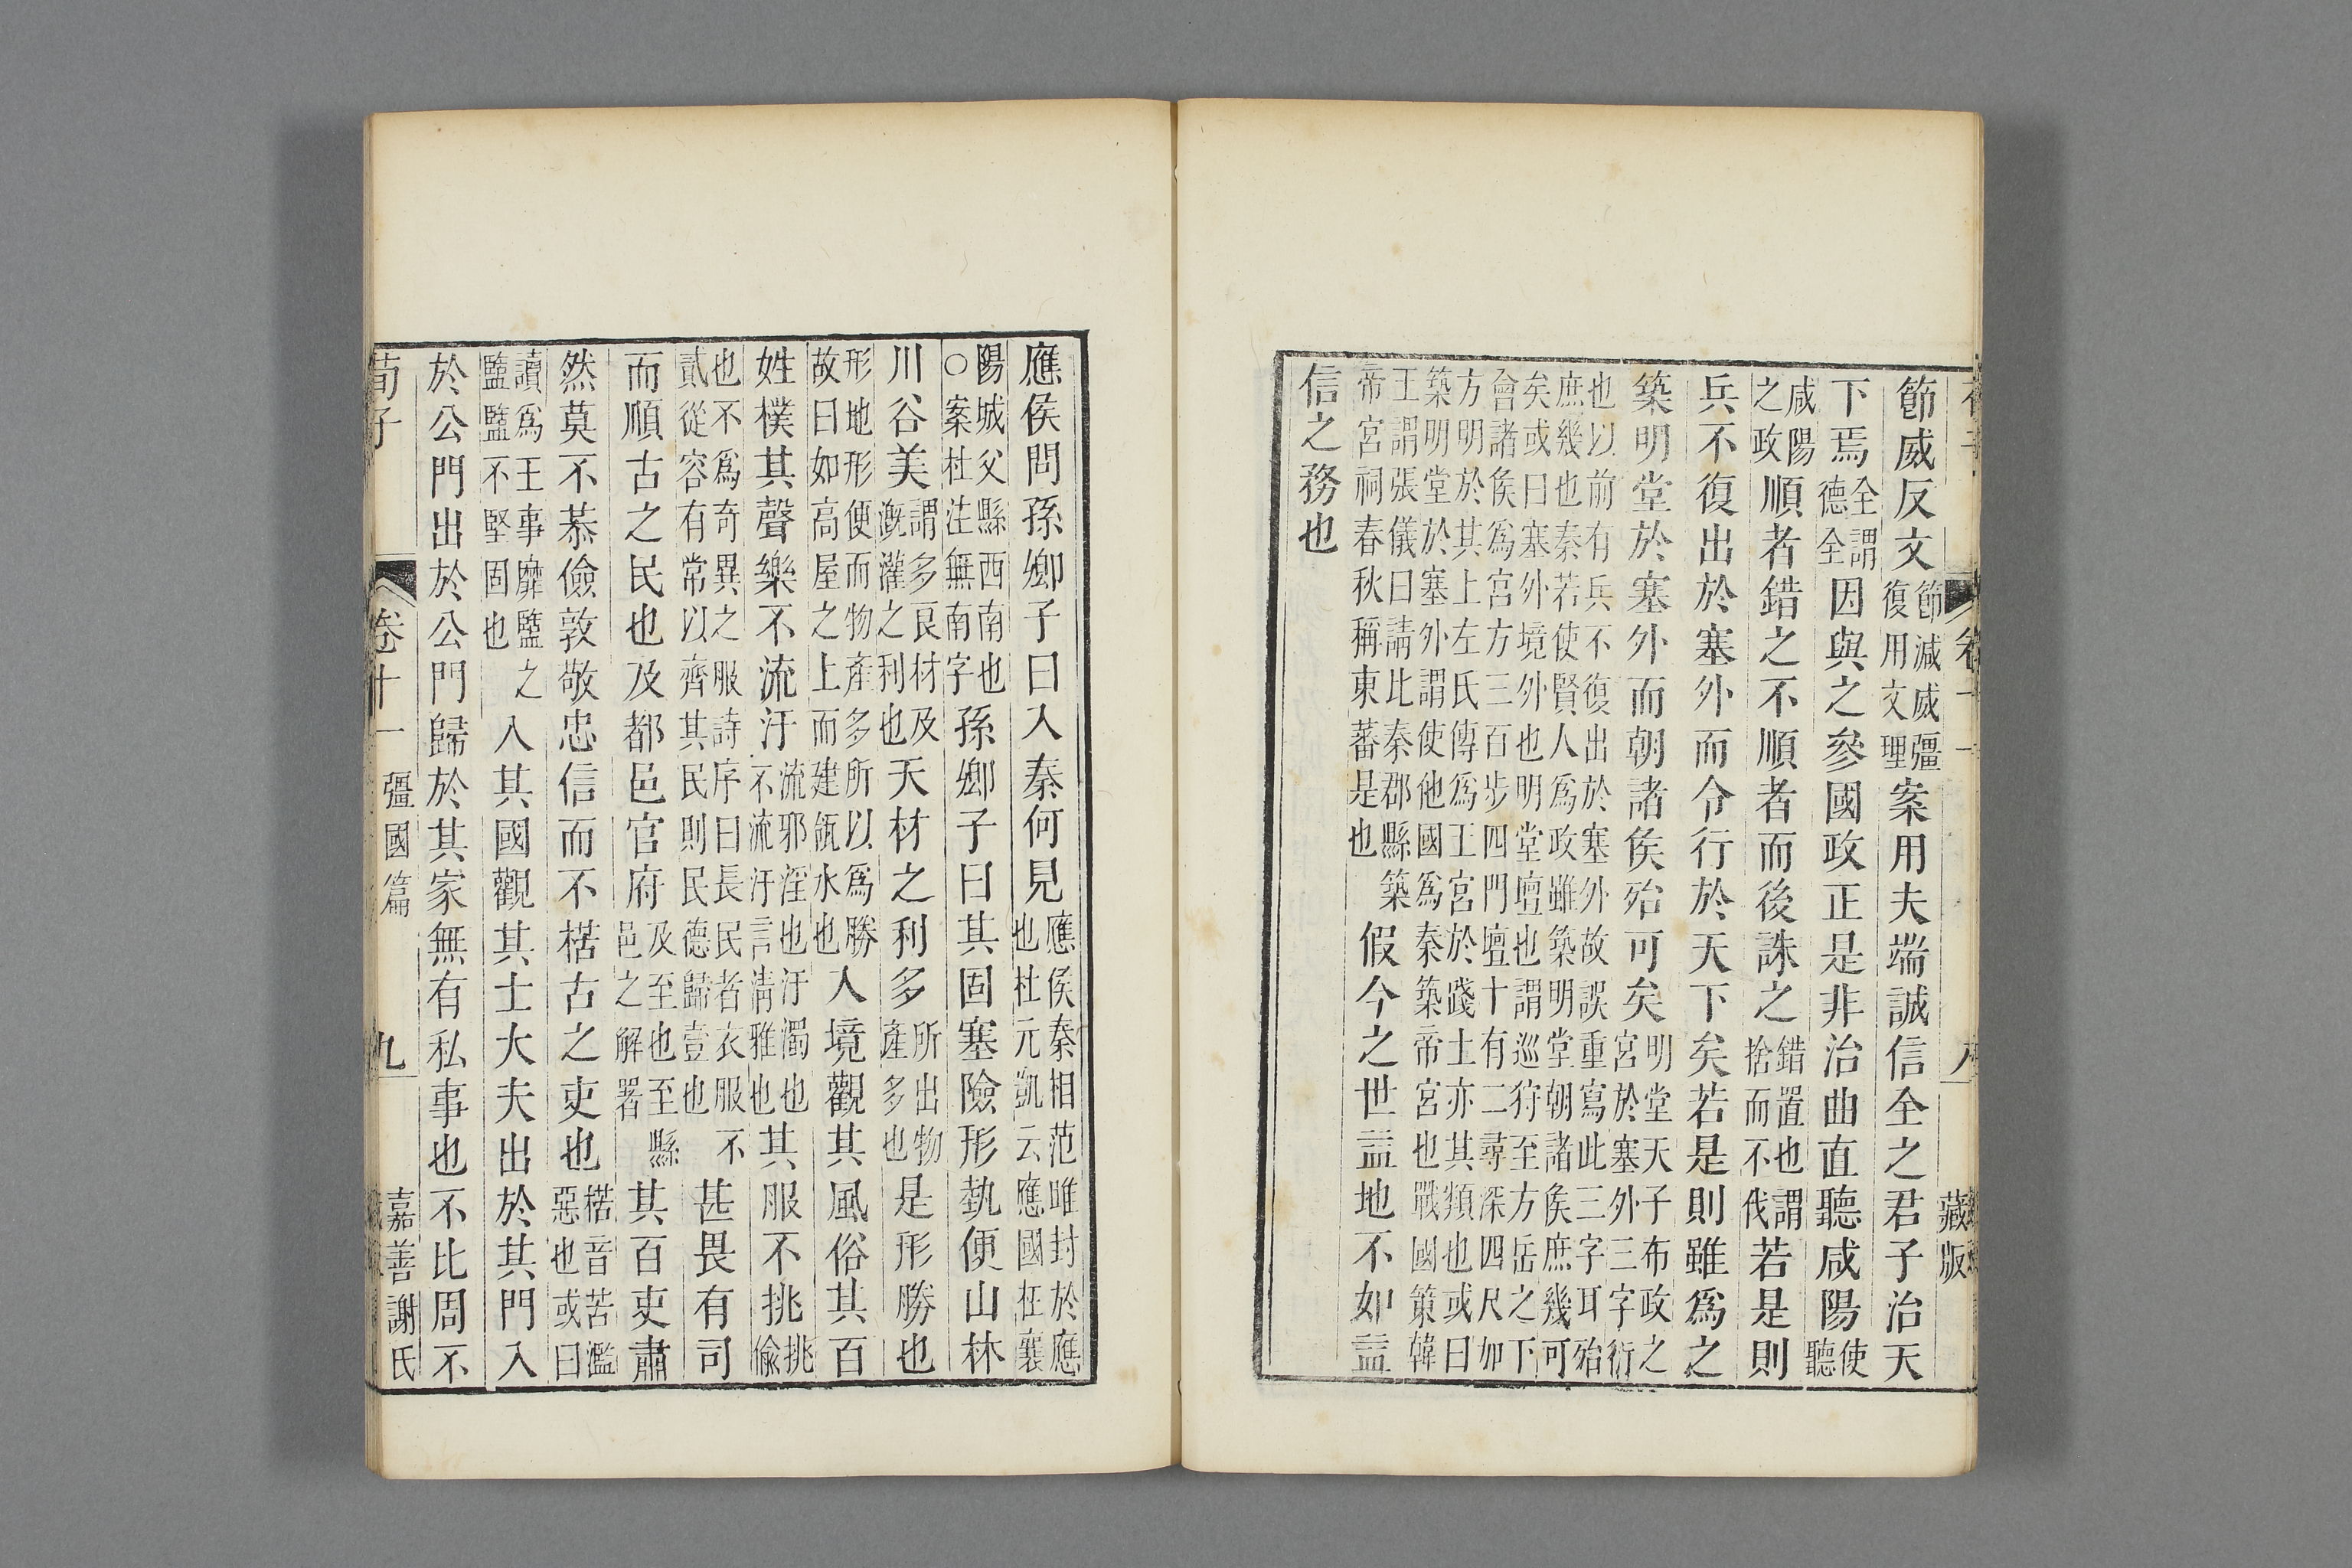 節威反文節減威彊復用文理案用夫端誠信全之君子治天
下焉全謂德全因與之參國政正是非治曲直聽咸陽使聽
咸陽之政順者錯之不順者而後誅之錯置也謂捨而不伐若是則
兵不復出於塞外而令行於天下矣若是則雖爲之
築明堂於塞外而朝諸侯殆可矣明堂天子布政之宮於塞外三字衍
也以前有兵不復出於塞外故誤重寫此三字耳殆
庶幾也秦若使賢人爲政雖築明堂朝諸侯庶幾可
矣或曰塞外境外也明堂壇也謂巡狩至方岳之下
會諸侯爲宮方三百步四門壇十有二尋深四尺加
方明於其上左氏傳爲王宮於踐土亦其類也或曰
築明堂於塞外謂使他國爲秦築帝宮也戰國策韓
王謂張儀曰請比秦郡縣築帝宮祠春秋稱東蕃是也假今之世益地不如益
信之務也
藏版
應侯問孫卿子曰入秦何見應侯秦相范雎封於應也杜元凱云應國在襄
陽城父縣西南也○案杜注無南字孫卿子曰其固塞險形埶便山林
川谷美謂多良材及漑灌之利也天材之利多所出物產多也是形勝也
形地形便而物產多所以爲勝故曰如高屋之上而建瓴水也入境觀其風俗其百
姓樸其聲樂不流汙流邪淫也汙濁也不流汙言清雅也其服不挑挑偸
也不爲奇異之服詩序曰長民者衣服不貳從容有常以齊其民則民德歸壹也甚畏有司
而順古之民也及都邑官府及至也至縣邑之解署其百吏肅
然莫不恭儉敦敬忠信而不楛古之吏也楛音苦濫惡也或曰
讀爲王事靡盬之盬盬不堅固也入其國觀其士大夫出於其門入
於公門出於公門歸於其家無有私事也不比周不
荀子 卷十一 彊國篇 九 嘉善謝氏